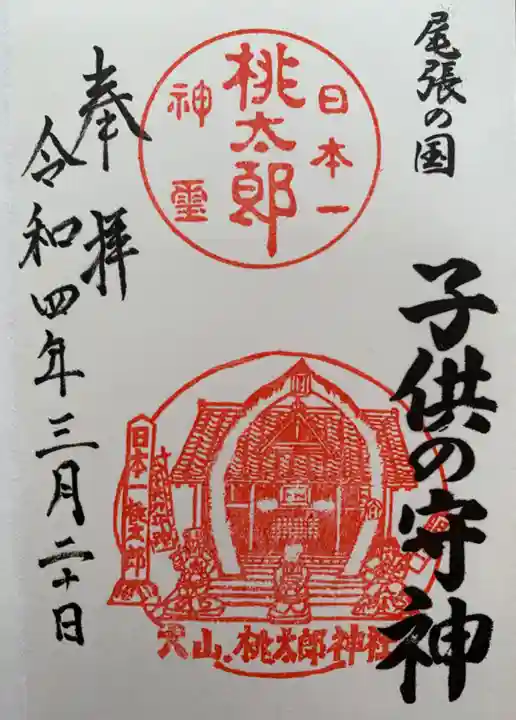 尾張の国
子供の守神
日本一
桃太郎
神霊
日本一桃太郎
犬山・桃太郎神社
奉拝
令和四年三月二十日